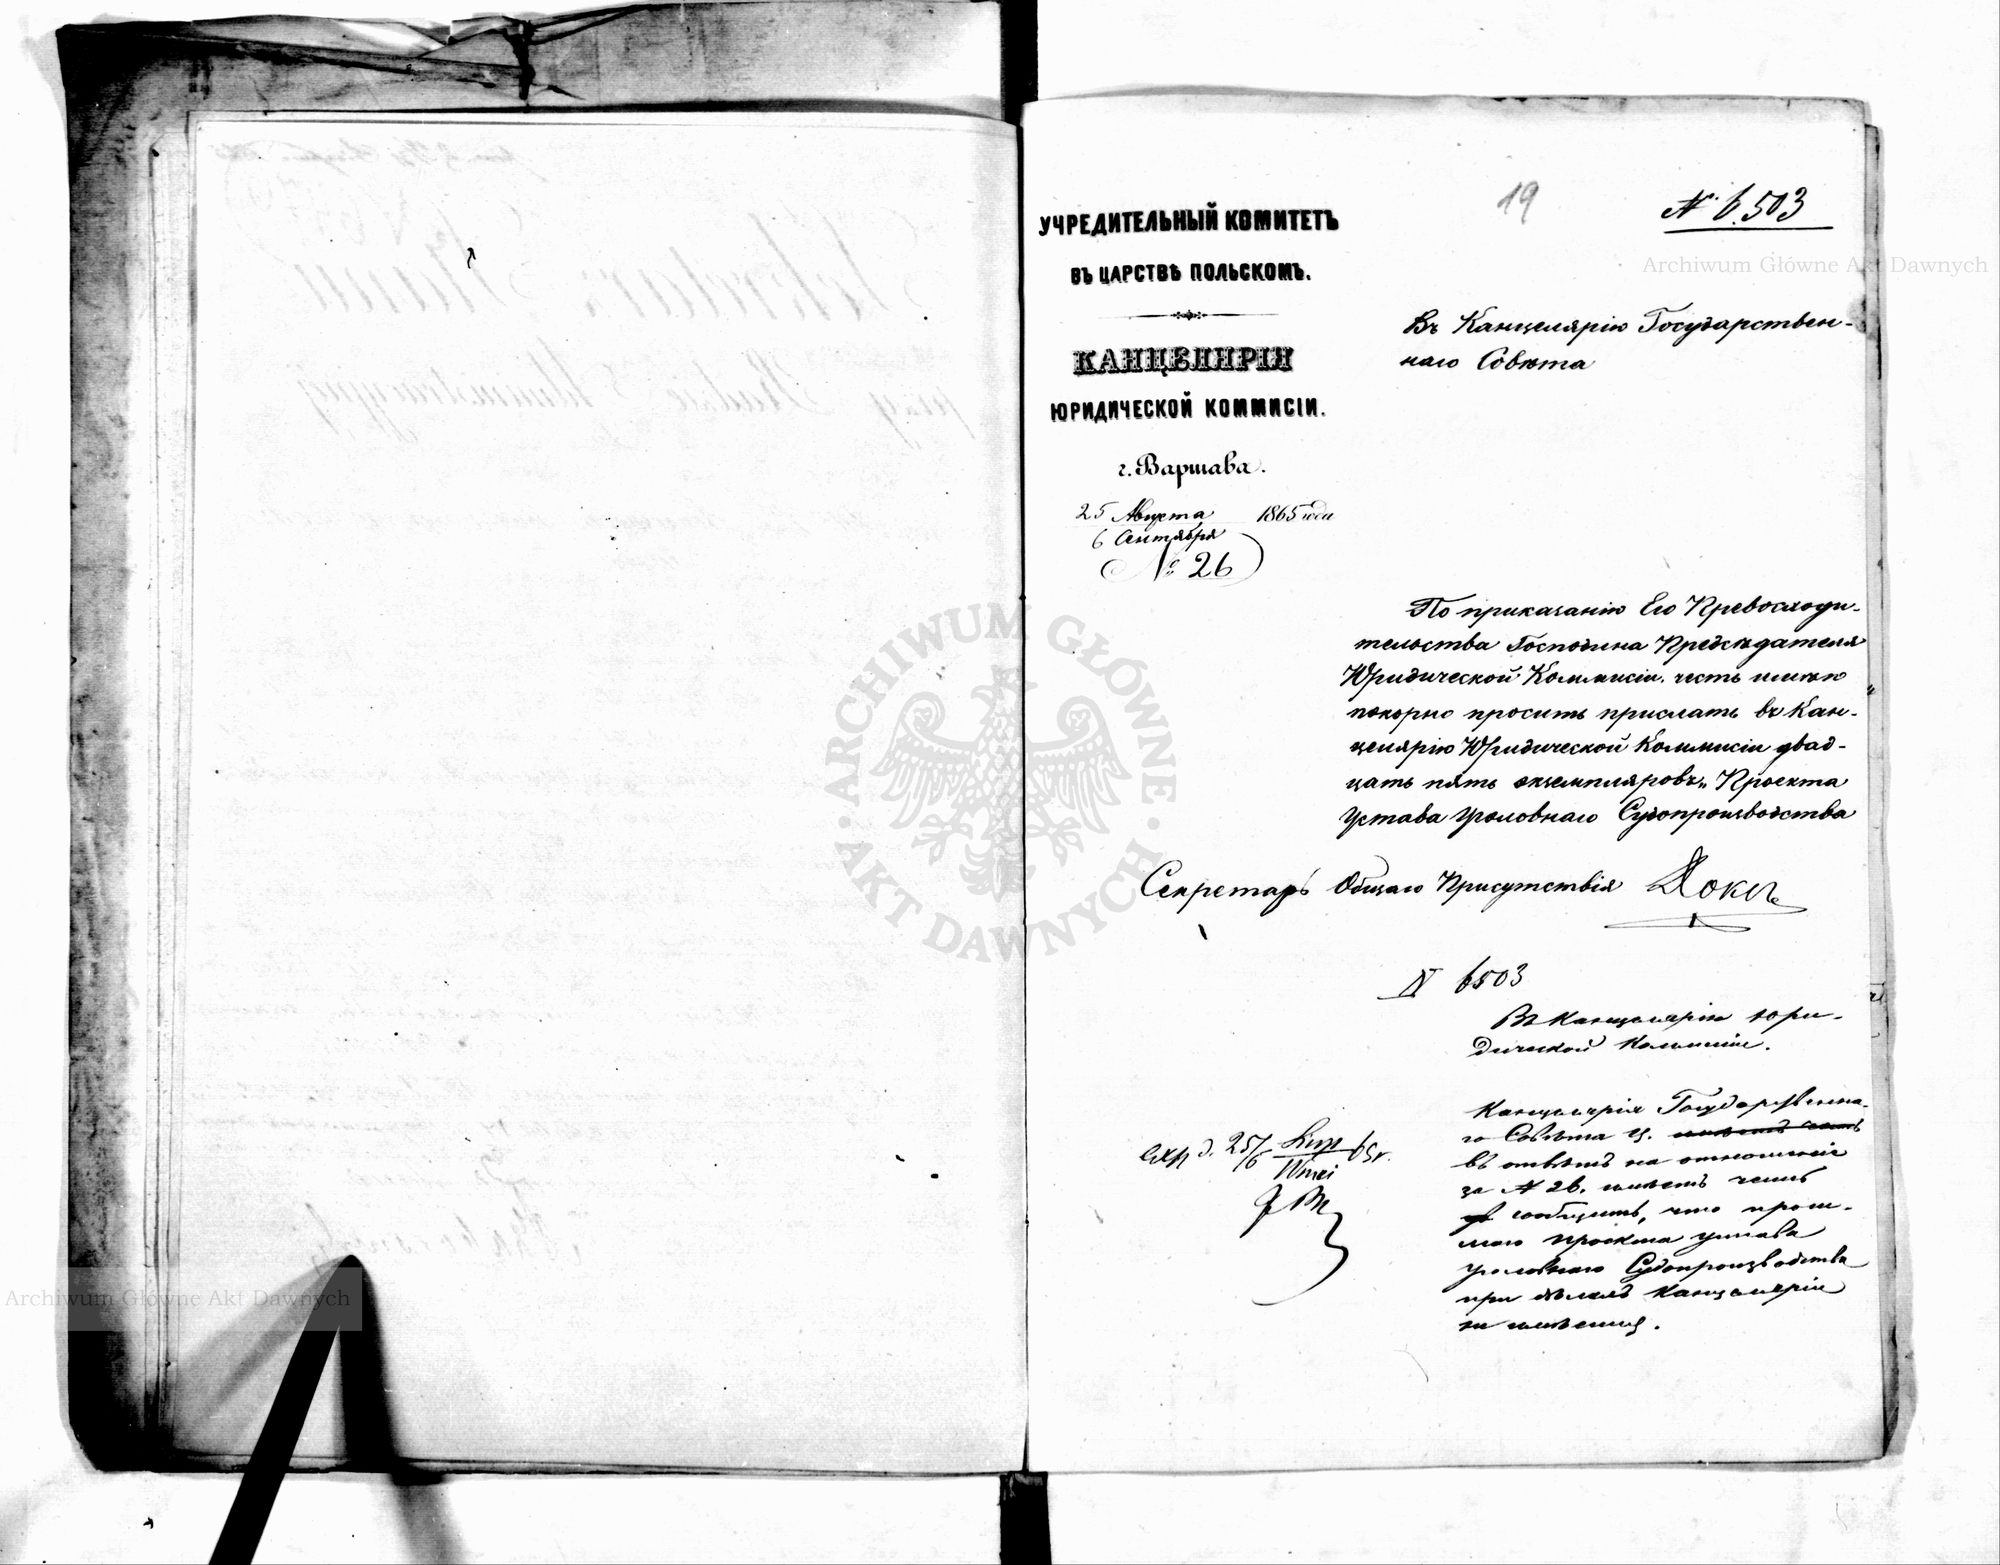 19
№ 6.503
УЧРЕДИТЕЛЬНЫЙ КОМИТЕТЪ
ВЪ ЦАРСТВѢ ПОЛЬСКОМЪ.
КАНЦЕЛЯРІЯ
ЮРИДИЧЕСКОЙ КОММИСІИ.
г. Варшава.
25 Августа 1865 года
6 Сентября
№ 26
Въ Канцелярію Государствен-
наго Совѣта
По приказанію Его Превосходи-
тельства Господина Предсѣдателя
Юридической Коммисіи, честь имѣю
покорно просить прислать въ Кан-
целярію Юридической Коммисіи двад-
цать пять экземпляровъ „Проекта
Устава Уголовнаго Судопроизводства
Секретарь Общаго Присутствія
N 6503
Въ Канцелярію Юри-
дической Коммисіи.
Канцелярія Государственна-
го Совѣта Ц. имѣетъ честь
въ отвѣтъ на отношеніе
за № 26. имѣетъ честь
сообщить, что
проекта устава
уголовнаго Судопроизводства
при дѣлахъ Канцеляріи
не имѣется.
exp d. 25/6 Sierp 65 r.
Wrześ
Archiwum Główne Akt Dawnych
ARCHIWUM GŁÓWNE AKT DAWNYCH
Archiwum Główne Akt Dawnych